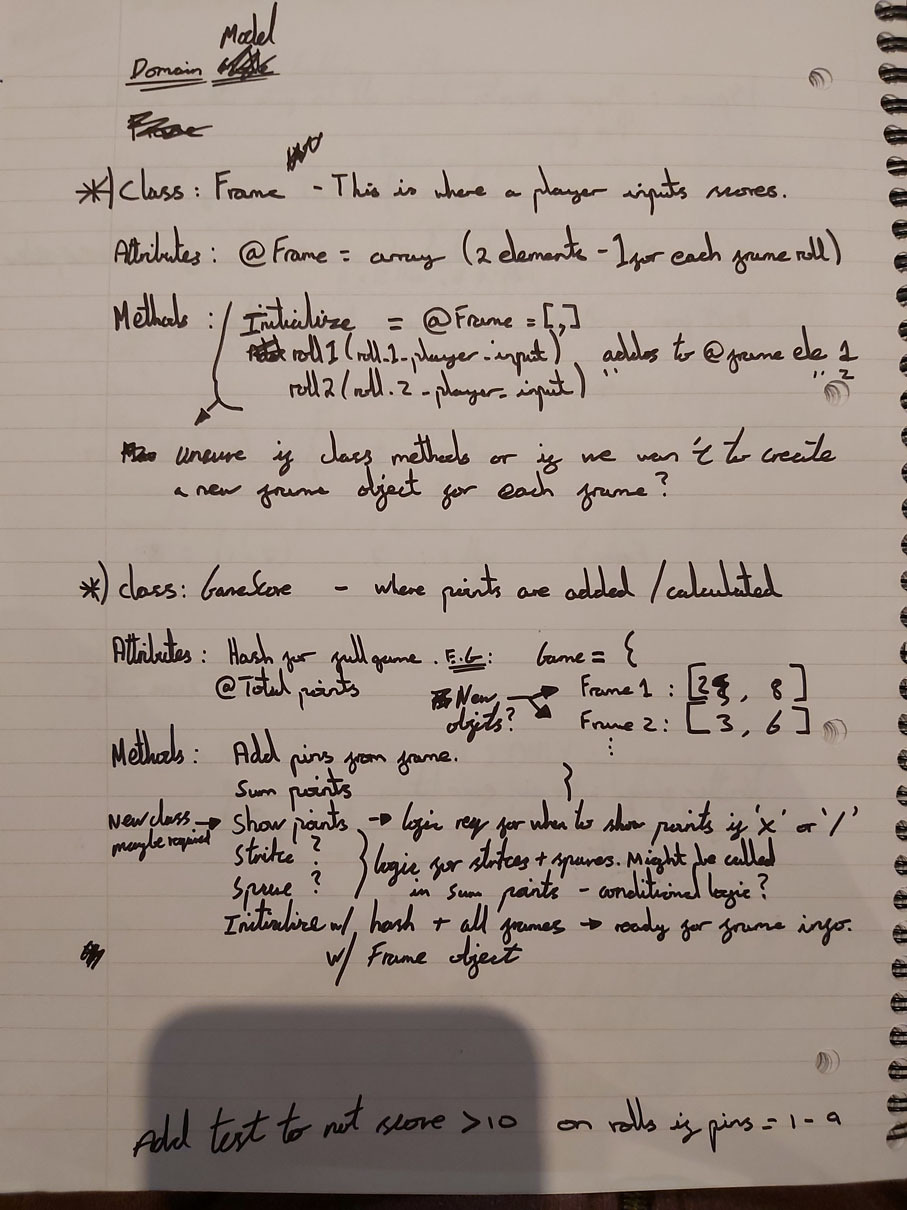 Model
Domain
*) Class: Frame - This is where a player inputs scores.
Attributes: @Frame = array (2 elements - 1 for each frame roll)
Methods: Initialize = @Frame = [,]
roll1 (roll_1_player_input) addes to @frame ele 1
roll2 (roll_2_player_input) " " 2
unsure if class methods or if we wan't to create
a new frame object for each frame?
*) class: GameScore - where points are added/calculated
Attributes: Hash for full game. E.G: Game = {
@Total points
New objects? Frame 1: [2, 8]
Frame 2: [3, 6]
⋮
}
Methods: Add pins from frame.
Sum points
New class maybe required → Show points → logic req for when to show points if 'x' or '/'
Strike?
Spare?
logic for strikes + spares. Might be called
in sum points - conditional logic?
Initialize w/ hash + all frames → ready for frame info.
w/ Frame object
Add test to not score >10 on rolls if pins = 1-9